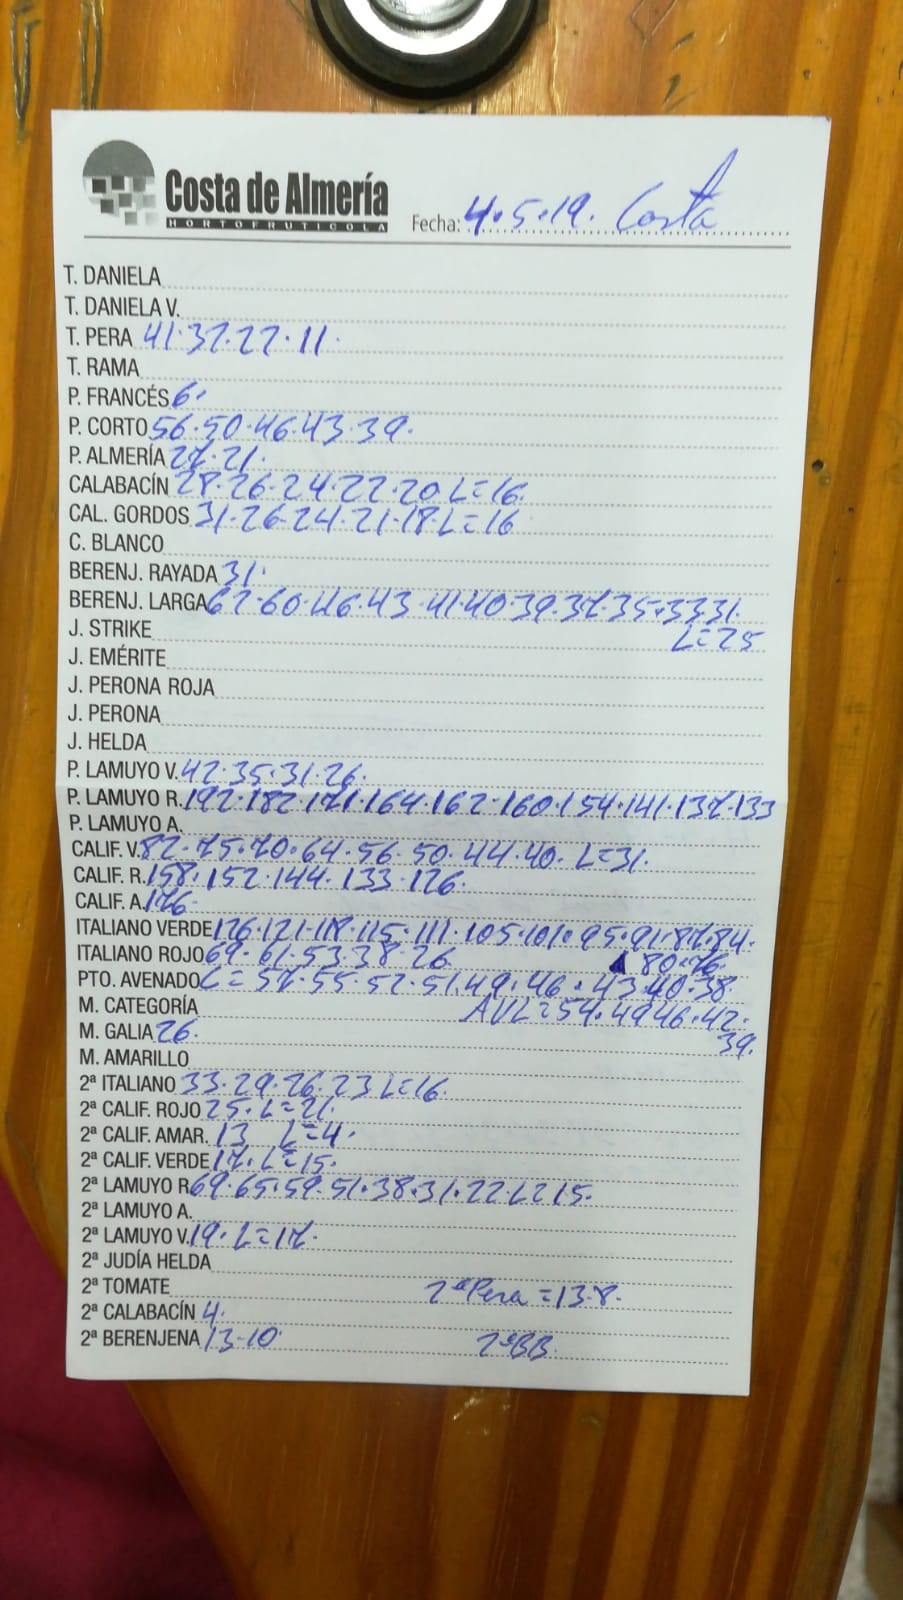 Costa de Almería
HORTOFRUTICOLA
Fecha: 4.5.19. Costa
T. DANIELA
T. DANIELA V.
T. PERA 41.37.27.11.
T. RAMA
P. FRANCÉS 6.
P. CORTO 56.50.46.43.39.
P. ALMERÍA 27.21.
CALABACÍN 28.26.24.22.20 L=16.
CAL. GORDOS 31.26.24.21.18.L=16.
C. BLANCO
BERENJ. RAYADA 31.
BERENJ. LARGA 62.60.46.43.41.40.39.37.35.33.31.
L=25
J. STRIKE
J. EMÉRITE
J. PERONA ROJA
J. PERONA
J. HELDA
P. LAMUYO V. 42.35.31.26.
P. LAMUYO R. 192.182.171.164.162.160.154.141.137.133
P. LAMUYO A.
CALIF. V. 82.75.70.64.56.50.44.40. L=31.
CALIF. R. 158.152.144.133.126.
CALIF. A. 176.
ITALIANO VERDE 126.121.118.115.111.105.101.95.91.87.84.
80.76.
ITALIANO ROJO 69.61.53.38.26.
PTO. AVENADO L=57.55.52.51.49.46.43.40.38
AVL=54.49.46.42.
39.
M. CATEGORÍA
M. GALIA 26.
M. AMARILLO
2ª ITALIANO 33.29.26.23 L=16.
2ª CALIF. ROJO 25. L=21.
2ª CALIF. AMAR. 13 L=4.
2ª CALIF. VERDE 17. L=15.
2ª LAMUYO R 69.65.59.51.38.31.22.L=15.
2ª LAMUYO A.
2ª LAMUYO V. 19. L=17.
2ª JUDÍA HELDA
2ª TOMATE 2ª Pera = 13.8.
2ª CALABACÍN 4.
2ª BERENJENA 13.10 2ª BB.